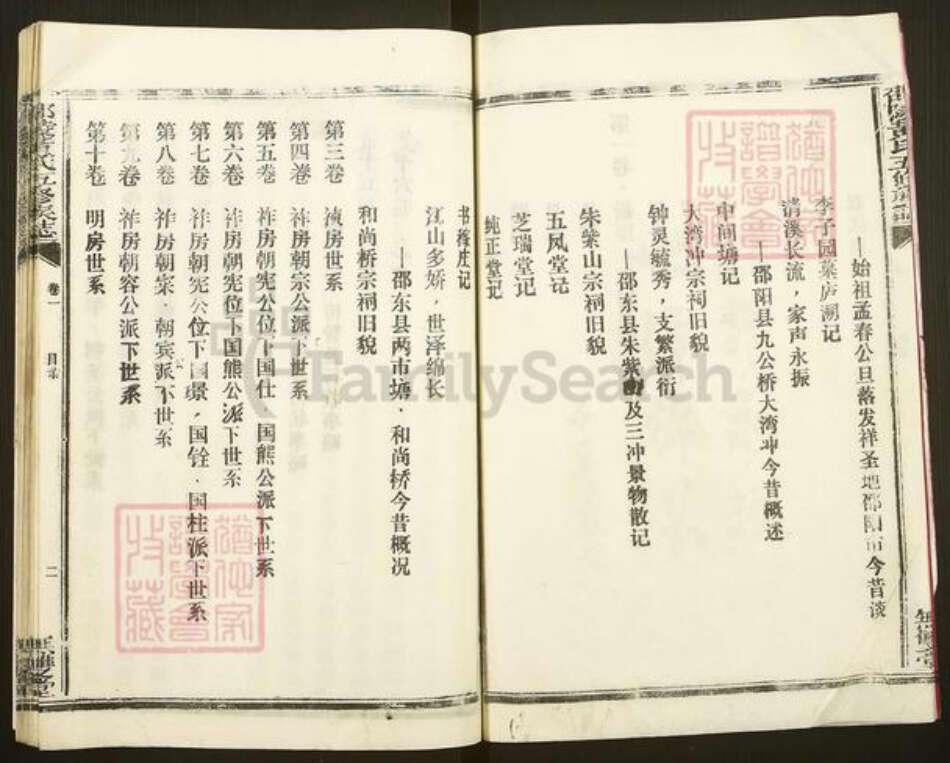 李子园墓庐溯记
——始祖孟春公旦落发祥圣地邵阳市今昔谈
清溪长流，家声永振
——邵阳县九公桥大湾冲今昔概述
中间塘记
大湾冲宗祠旧貌
钟灵毓秀，支繁派衍
——邵东县朱紫山及三冲景物散记
朱紫山宗祠旧貌
五凤堂记
芝瑞堂记
纯正堂记
书移庄记
江山多娇，世泽绵长
——邵东县两市塘、和尚桥今昔概况
和尚桥宗祠旧貌
第三卷 祯房世系
第四卷 祚房朝宗公派下世系
第五卷 祚房朝宪公位下国仕、国熊公派下世系
第六卷 祚房朝宪位下国熊公派下世系
第七卷 祚房朝宪公位下国景、国铨、国柱派下世系
第八卷 祚房朝宋、朝宾派下世系
第九卷 祚房朝容公派下世系
第十卷 明房世系
卷一
目录
二
谱学会
FamilySearch
谱学会
收藏